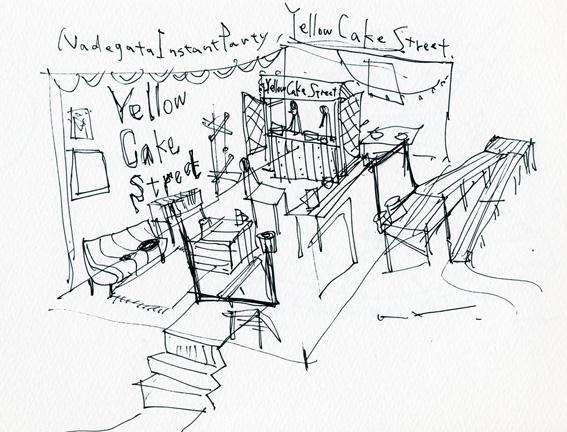 Nadegata Instant Party, Yellow Cake Street.
Yellow Cake Street
Yellow
Cake
Street